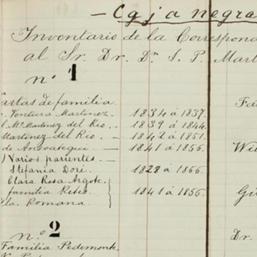 — Caja negra
Inventario de la Correspon
al Sr. Dr. Dn. S. P. Mart
nº 1
Cartas de familia
Ventura Martinez 1834 á 1837. Fa
Martinez del Rio, 1839 á 1844.
Martinez del Rio 1842 á 1851.
de Ansoategui — 1841 á 1856. Wi
) Varios parientes
Stefania Doré 1828 á 1866.
Clara Rosa Argote
familia Retes 1841 á 1856 Gi
la Romana
nº 2 Dr.
Familia Pedemonte